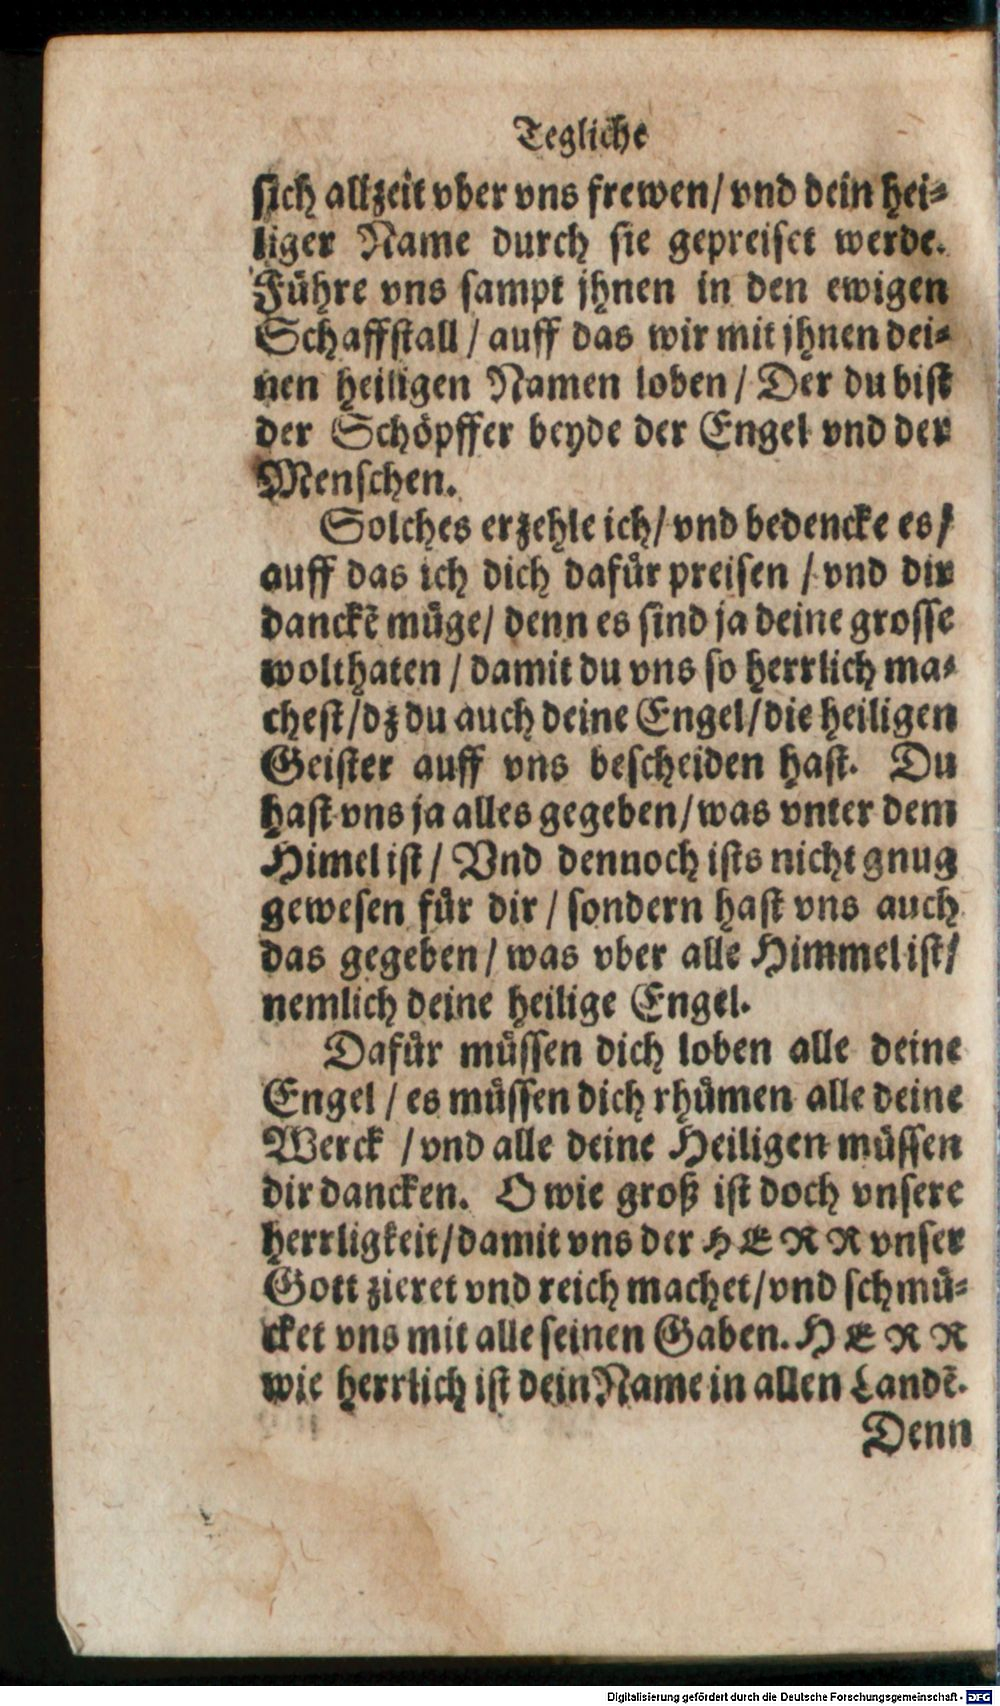 Tegliche
sich allzeit vber vns frewen/ vnd dein hei-
liger Name durch sie gepreiset werde.
Führe vns sampt jhnen in den ewigen
Schaffstall / auff das wir mit jhnen dei-
nen heiligen Namen loben / Der du bist
der Schöpffer beyde der Engel vnd der
Menschen.
Solches erzehle ich/ vnd bedencke es/
auff das ich dich dafür preisen / vnd dir
danckē müge/ denn es sind ja deine grosse
wolthaten / damit du vns so herrlich ma-
chest/dz du auch deine Engel/die heiligen
Geister auff vns bescheiden hast. Du
hast vns ja alles gegeben/was vnter dem
Himel ist / Vnd dennoch ists nicht gnug
gewesen für dir / sondern hast vns auch
das gegeben / was vber alle Himmel ist/
nemlich deine heilige Engel.
Dafür müssen dich loben alle deine
Engel / es müssen dich rhümen alle deine
Werck / vnd alle deine Heiligen müssen
dir dancken. O wie groß ist doch vnsere
herrligkeit/damit vns der HERR vnser
Gott zieret vnd reich machet/vnd schmü-
cket vns mit alle seinen Gaben. HERR
wie herrlich ist dein Name in allen Landē.
Denn
Digitalisierung gefördert durch die Deutsche Forschungsgemeinschaft - DFG